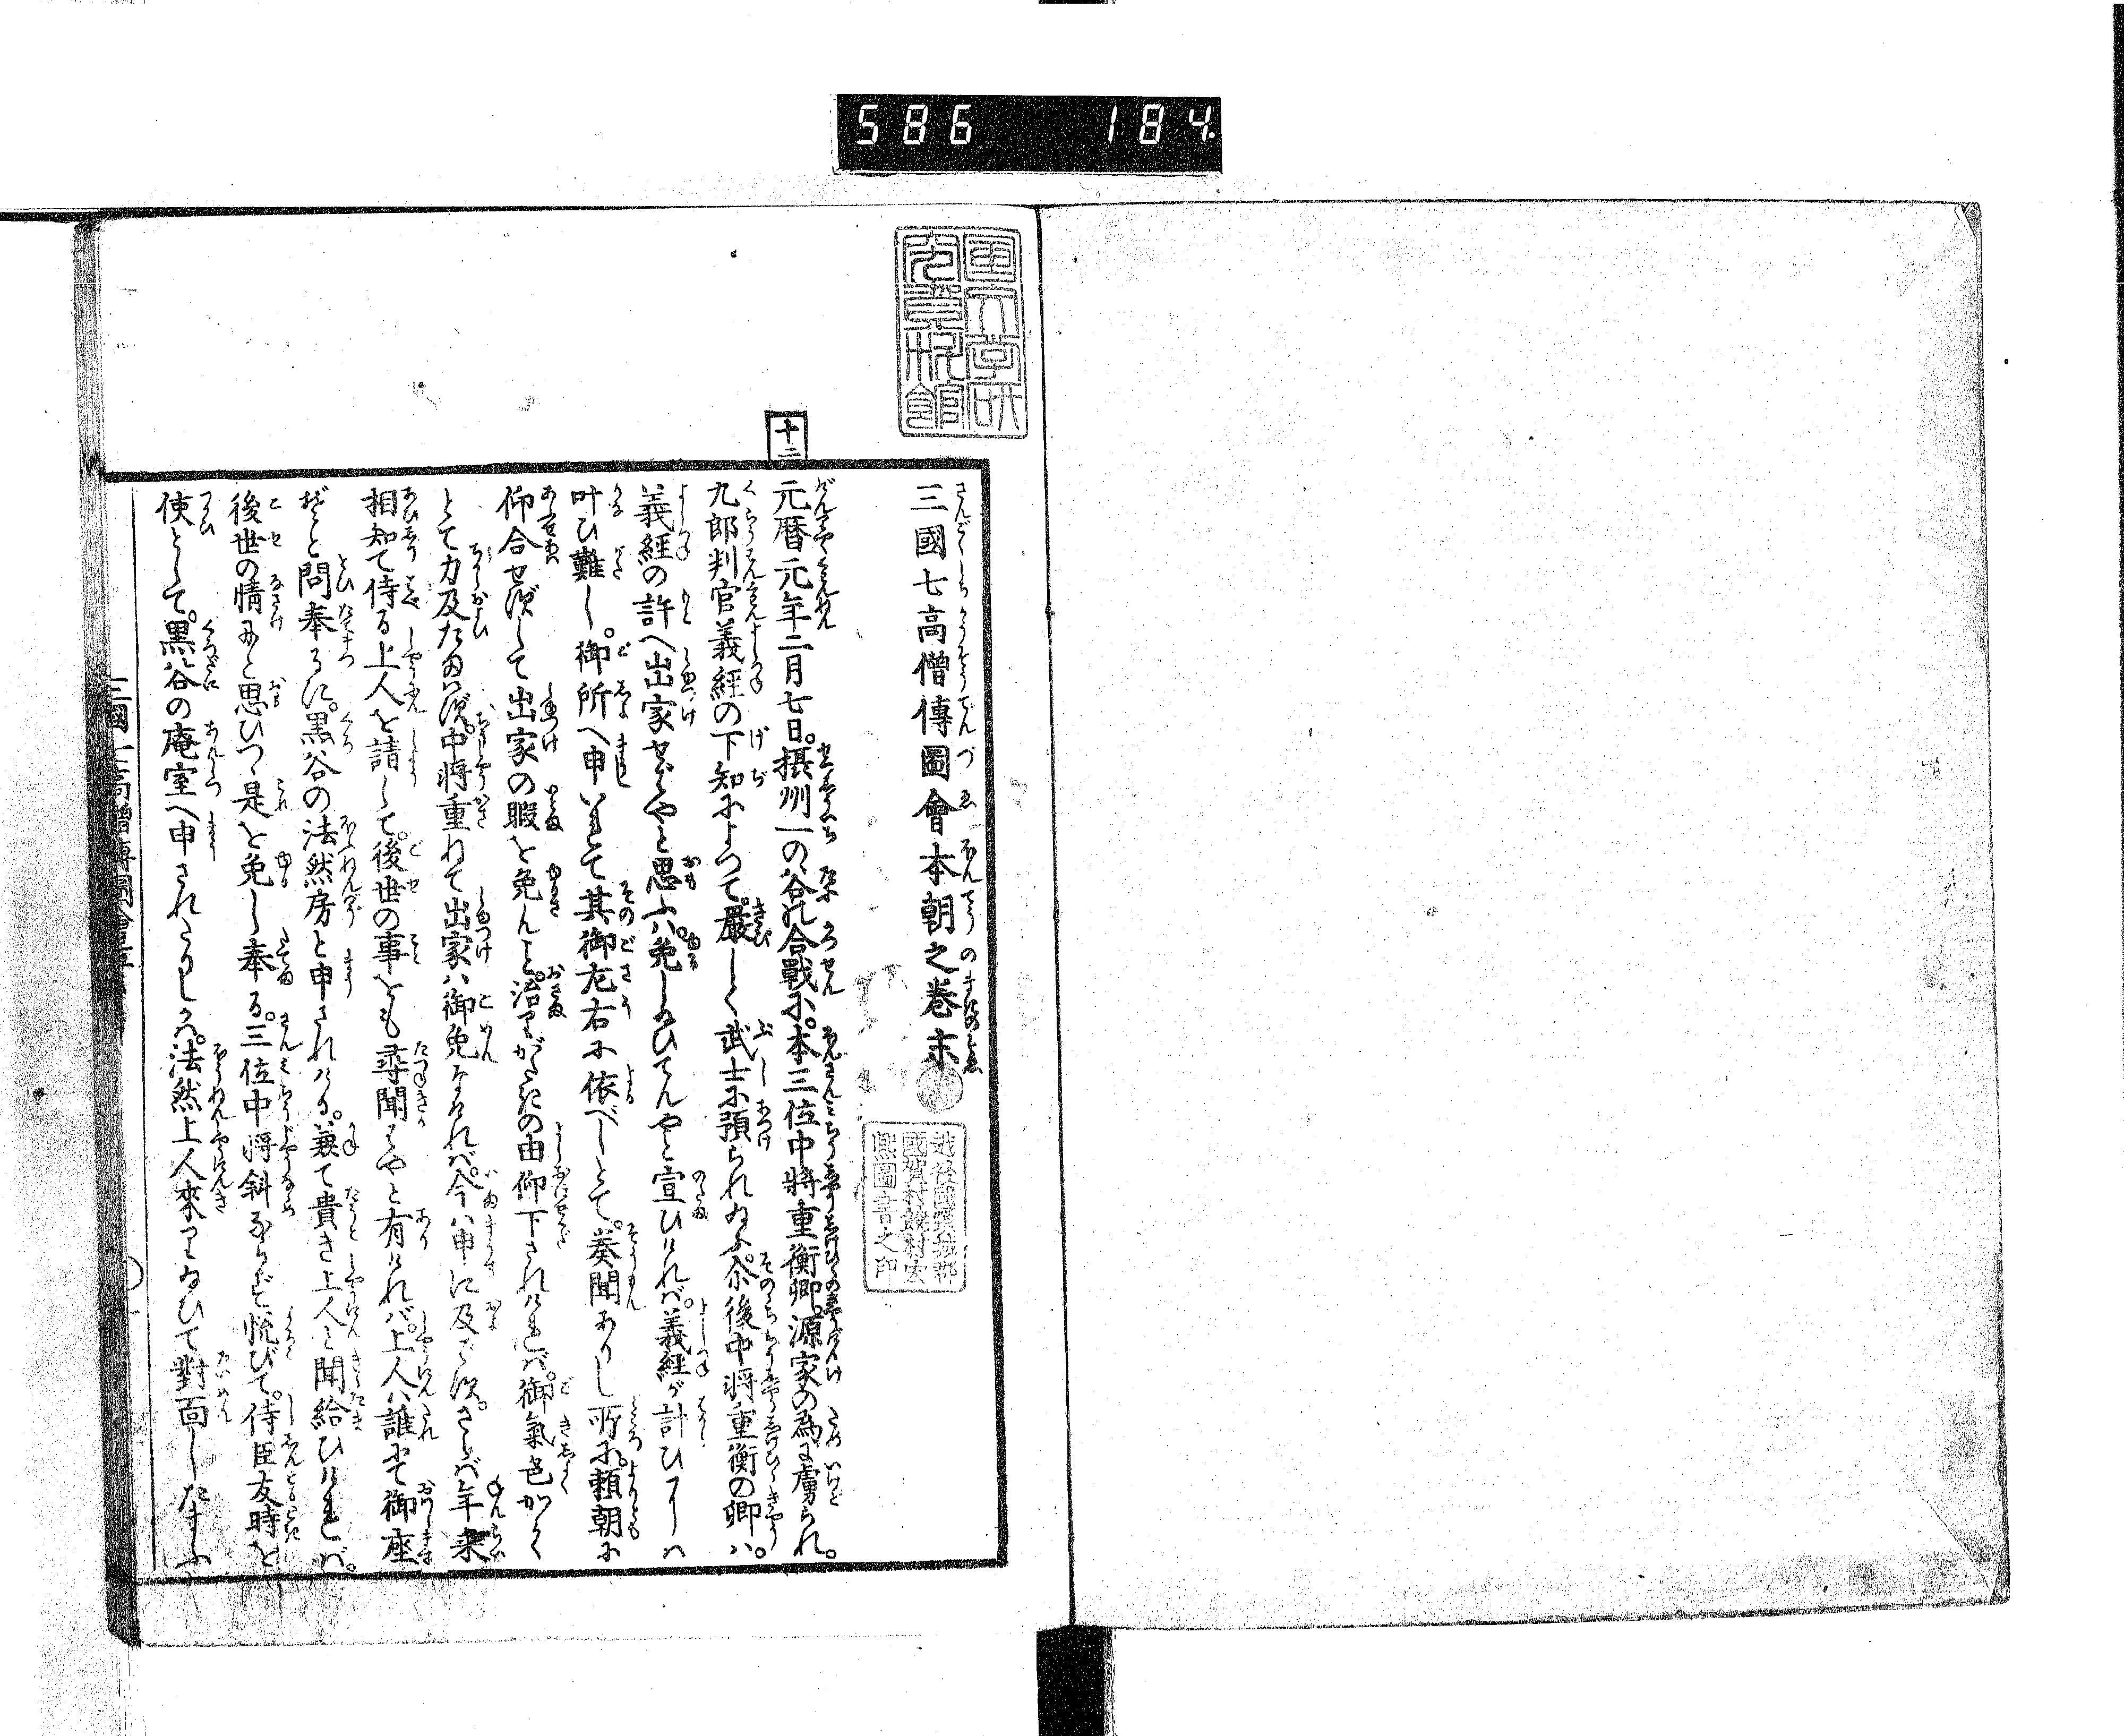 586 184
三國七高僧傳圖會本朝之巻末
十二
元暦元年二月七日。摂州一の谷の合戦に。本三位中将重衡卿。源家の為に虜られ。
九郎判官義經の下知によつて。厳しく武士に預られ給ふ。尓後中将重衡の卿ハ。
義經の許へ出家せばやと思ふハ。免し給ひてんやと宣ひけれバ。義經が計ひにハ
叶ひ難し。御所へ申いれて其御左右に依べしとて。奏聞ありし所に。頼朝に
仰合せずして出家の暇を免んと。治りがたきの由仰下されけれバ。御氣色かく
とて力及たまはず。中将重ねて出家ハ御免なけれバ。今ハ申に及ばず。さらバ年来
相知て侍る上人を請して。後世の事をも尋聞ばやと有けれバ。上人ハ誰にて御座
ぞと問奉るに。黒谷の法然房と申されける。兼て貴き上人と聞給ひけれバ。
後世の情にと思ひつゝ是を免し奉る。三位中将斜ならず悦びて。侍臣友時を
使として。黒谷の庵室へ申されたりしかバ。法然上人来り給ひて對面したまふ